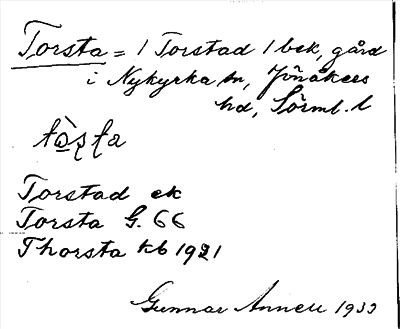 Torsta = 1 Torstad 1 bek, gård
i Nykyrka sn, Jönåkers
hd, Sörml. l
Torstad ek
Torsta G. 66
Thorsta kb 1921
Gunnar Annell 1933